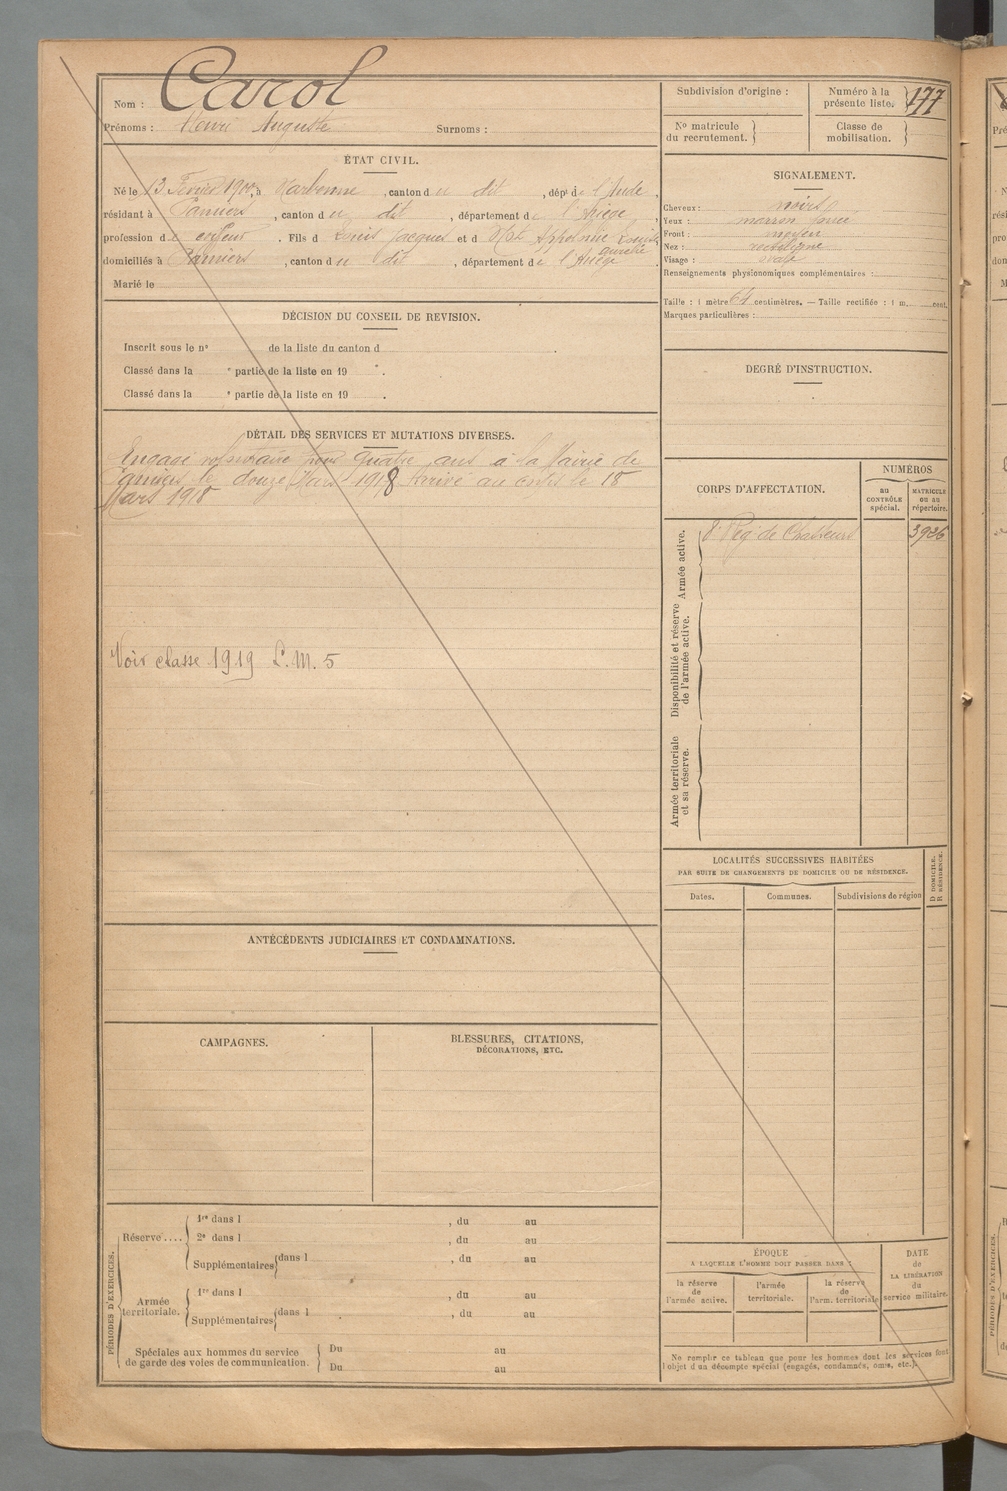 Nom : Carol
Prénoms : Henri Auguste Surnoms :
ÉTAT CIVIL.
Né le 13 Février 1900, à Narbonne, canton du dit, dépt de l'Aude,
résidant à Pamiers, canton du dit, département de l'Ariège,
profession de coiffeur. Fils de Louis Jacques et d Appolonie Louise
Aurélie
domiciliés à Pamiers, canton du dit, département de l'Ariège.
Marié le
DÉCISION DU CONSEIL DE REVISION.
Inscrit sous le n° de la liste du canton d .
Classé dans la e partie de la liste en 19 .
Classé dans la e partie de la liste en 19 .
DÉTAIL DES SERVICES ET MUTATIONS DIVERSES.
Engagé volontaire pour quatre ans à la Mairie de
Pamiers le douze Mars 1918 Arrivé au corps le 18
Mars 1918
Voir classe 1919 L.M. 5
ANTÉCÉDENTS JUDICIAIRES ET CONDAMNATIONS.
CAMPAGNES.
BLESSURES, CITATIONS,
DÉCORATIONS, ETC.
PÉRIODES D'EXERCICES.
Réserve....
1re dans l , du au
2e dans l , du au
Supplémentaires dans l , du au
Armée
territoriale.
1re dans l , du au
Supplémentaires dans l , du au
Spéciales aux hommes du service
de garde des voies de communication.
Du au
Du au
Subdivision d'origine :
Numéro à la
présente liste. 177
No matricule
du recrutement.
Classe de
mobilisation.
SIGNALEMENT.
Cheveux : noirs
Yeux : marron foncé
Front : moyen
Nez : rectiligne
Visage : ovale
Renseignements physionomiques complémentaires :
Taille : 1 mètre 64 centimètres. — Taille rectifiée : 1 m. cent.
Marques particulières :
DEGRÉ D'INSTRUCTION.
CORPS D'AFFECTATION.
NUMÉROS
au
CONTRÔLE
spécial.
MATRICULE
OU AU
répertoire.
Armée active.
8e Rég de Chasseurs 3926
Disponibilité et réserve
de l'armée active.
Armée territoriale
et sa réserve.
LOCALITÉS SUCCESSIVES HABITÉES
PAR SUITE DE CHANGEMENTS DE DOMICILE OU DE RÉSIDENCE.
D DOMICILE.
R RÉSIDENCE.
Dates. Communes. Subdivisions de région
ÉPOQUE
A LAQUELLE L'HOMME DOIT PASSER DANS :
la réserve
de
l'armée active.
l'armée
territoriale.
la réserve
de
l'arm. territoriale
DATE
de
LA LIBÉRATION
du
service militaire.
Ne remplir ce tableau que pour les hommes dont les services font
l'objet d'un décompte spécial (engagés, condamnés, omis, etc.).